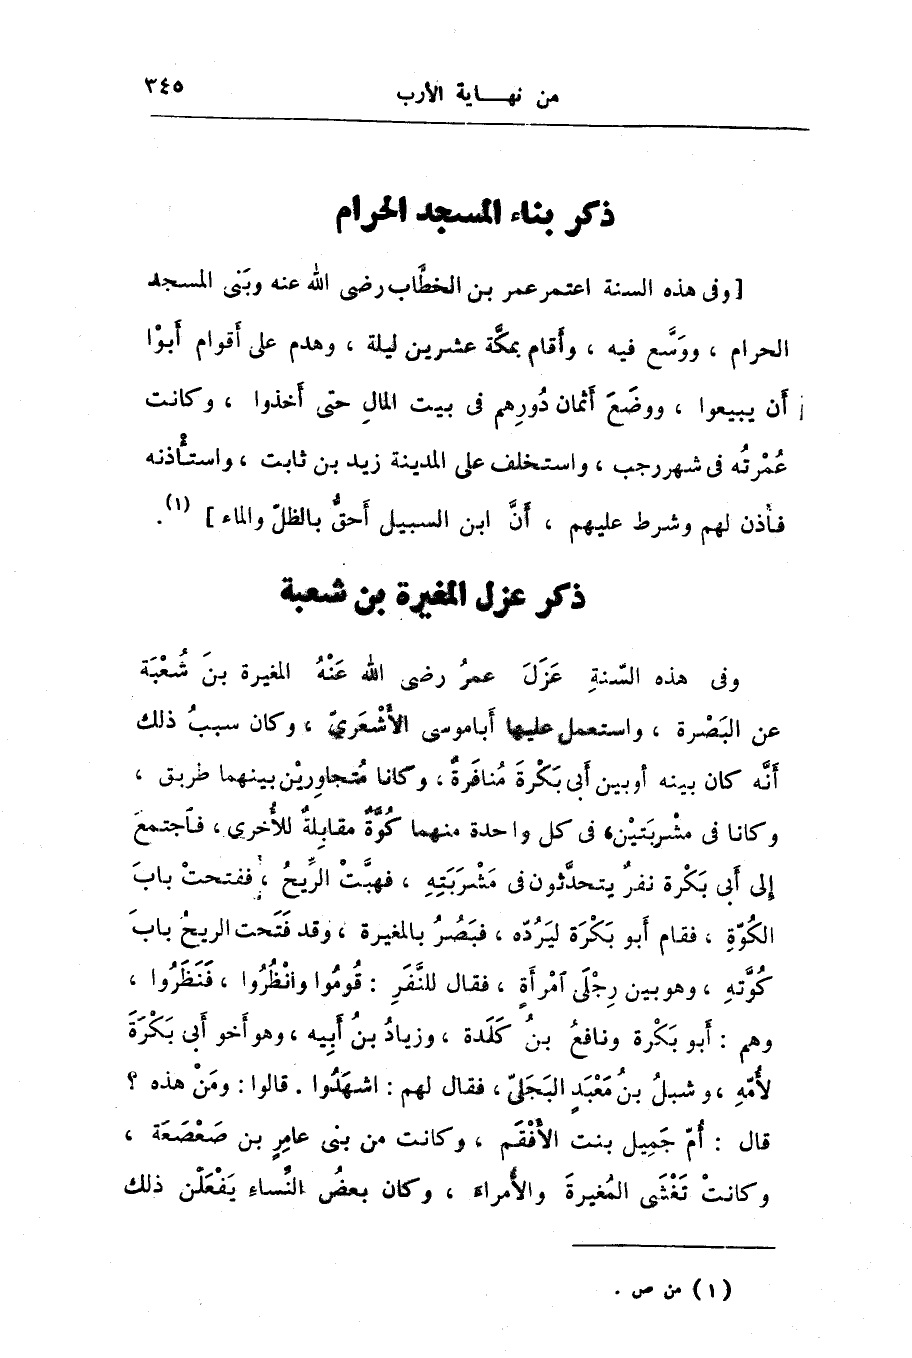 من نهـــاية الأرب ٣٤٥
ذكر بناء المسجد الحرام
[ وفى هذه السنة اعتمر عمر بن الخطَّاب رضى الله عنه وبَنى المسجد
الحرام ، ووَسَّع فيه ، وأَقام بمكَّة عشرين ليلة ، وهدم على أَقوام أَبوْا
أَن يبيعوا ، ووضَعَ أَثمان دُورِهم فى بيت المالِ حتى أَخذوا ، وكانت
عُمْرتُه فى شهر رجب ، واستخلف على المدينة زيد بن ثابت ، واستأْذنه
فأَذن لهم وشرط عليهم ، أَنَّ ابن السبيل أَحقُّ بالظلّ والماء ] (١).
ذكر عزل المغيرة بن شعبة
وفى هذه السّنةِ عَزَلَ عمرُ رضى الله عَنْهُ المغيرة بنَ شُعْبَة
عن البَصْرة ، واستعمل عليها أَباموسى الأَشْعَرِيّ ، وكان سببُ ذلك
أَنَّه كان بينه أوبين أَبى بَكْرةَ مُنافَرةٌ ، وكانا مُتجاوِريْن بينهما طريق ،
وكانا فى مشْربَتَيْن، فى كل واحدة منهما كُوَّةٌ مقابِلةٌ للأُخرى ، فٱجتمعَ
إلى أَبى بَكْرة نفرٌ يتحدَّثون فى مَشْرَبَتِهِ ، فهبَّتْ الرِّيحُ ، ففتحتْ بابَ
الكُوّةِ ، فقام أَبو بَكْرَة ليَرُدّه ، فبَصُرُ بالمغيرة ، وقد فَتَحت الريحُ بابَ
كُوَّتهِ ، وهو بين رِجْلَى ٱمْرأَةٍ ، فقال للنَّفَرِ : قُومُوا وانْظُرُوا ، فَنَظَرُوا ،
وهم : أَبو بَكْرة ونافعُ بنُ كَلَدة ، وزيادُ بنُ أَبِيه ، وهو أَخو أَبى بَكْرَةَ
لأُمّهِ ، وشبلُ بنُ مَعْبَدٍ البَجَلىّ ، فقال لهم : اشهَدُوا . قالوا : ومَنْ هذه ؟
قال : أُمّ جَمِيل بنت الأَفْقَم ، وكانت من بنى عامرِ بن صَعْصَعَة ،
وكانتْ تَغْشَى المُغيرةَ والأُمراءَ ، وكان بعضُ النِّساء يَفْعَلْن ذلك
(١) من ص .